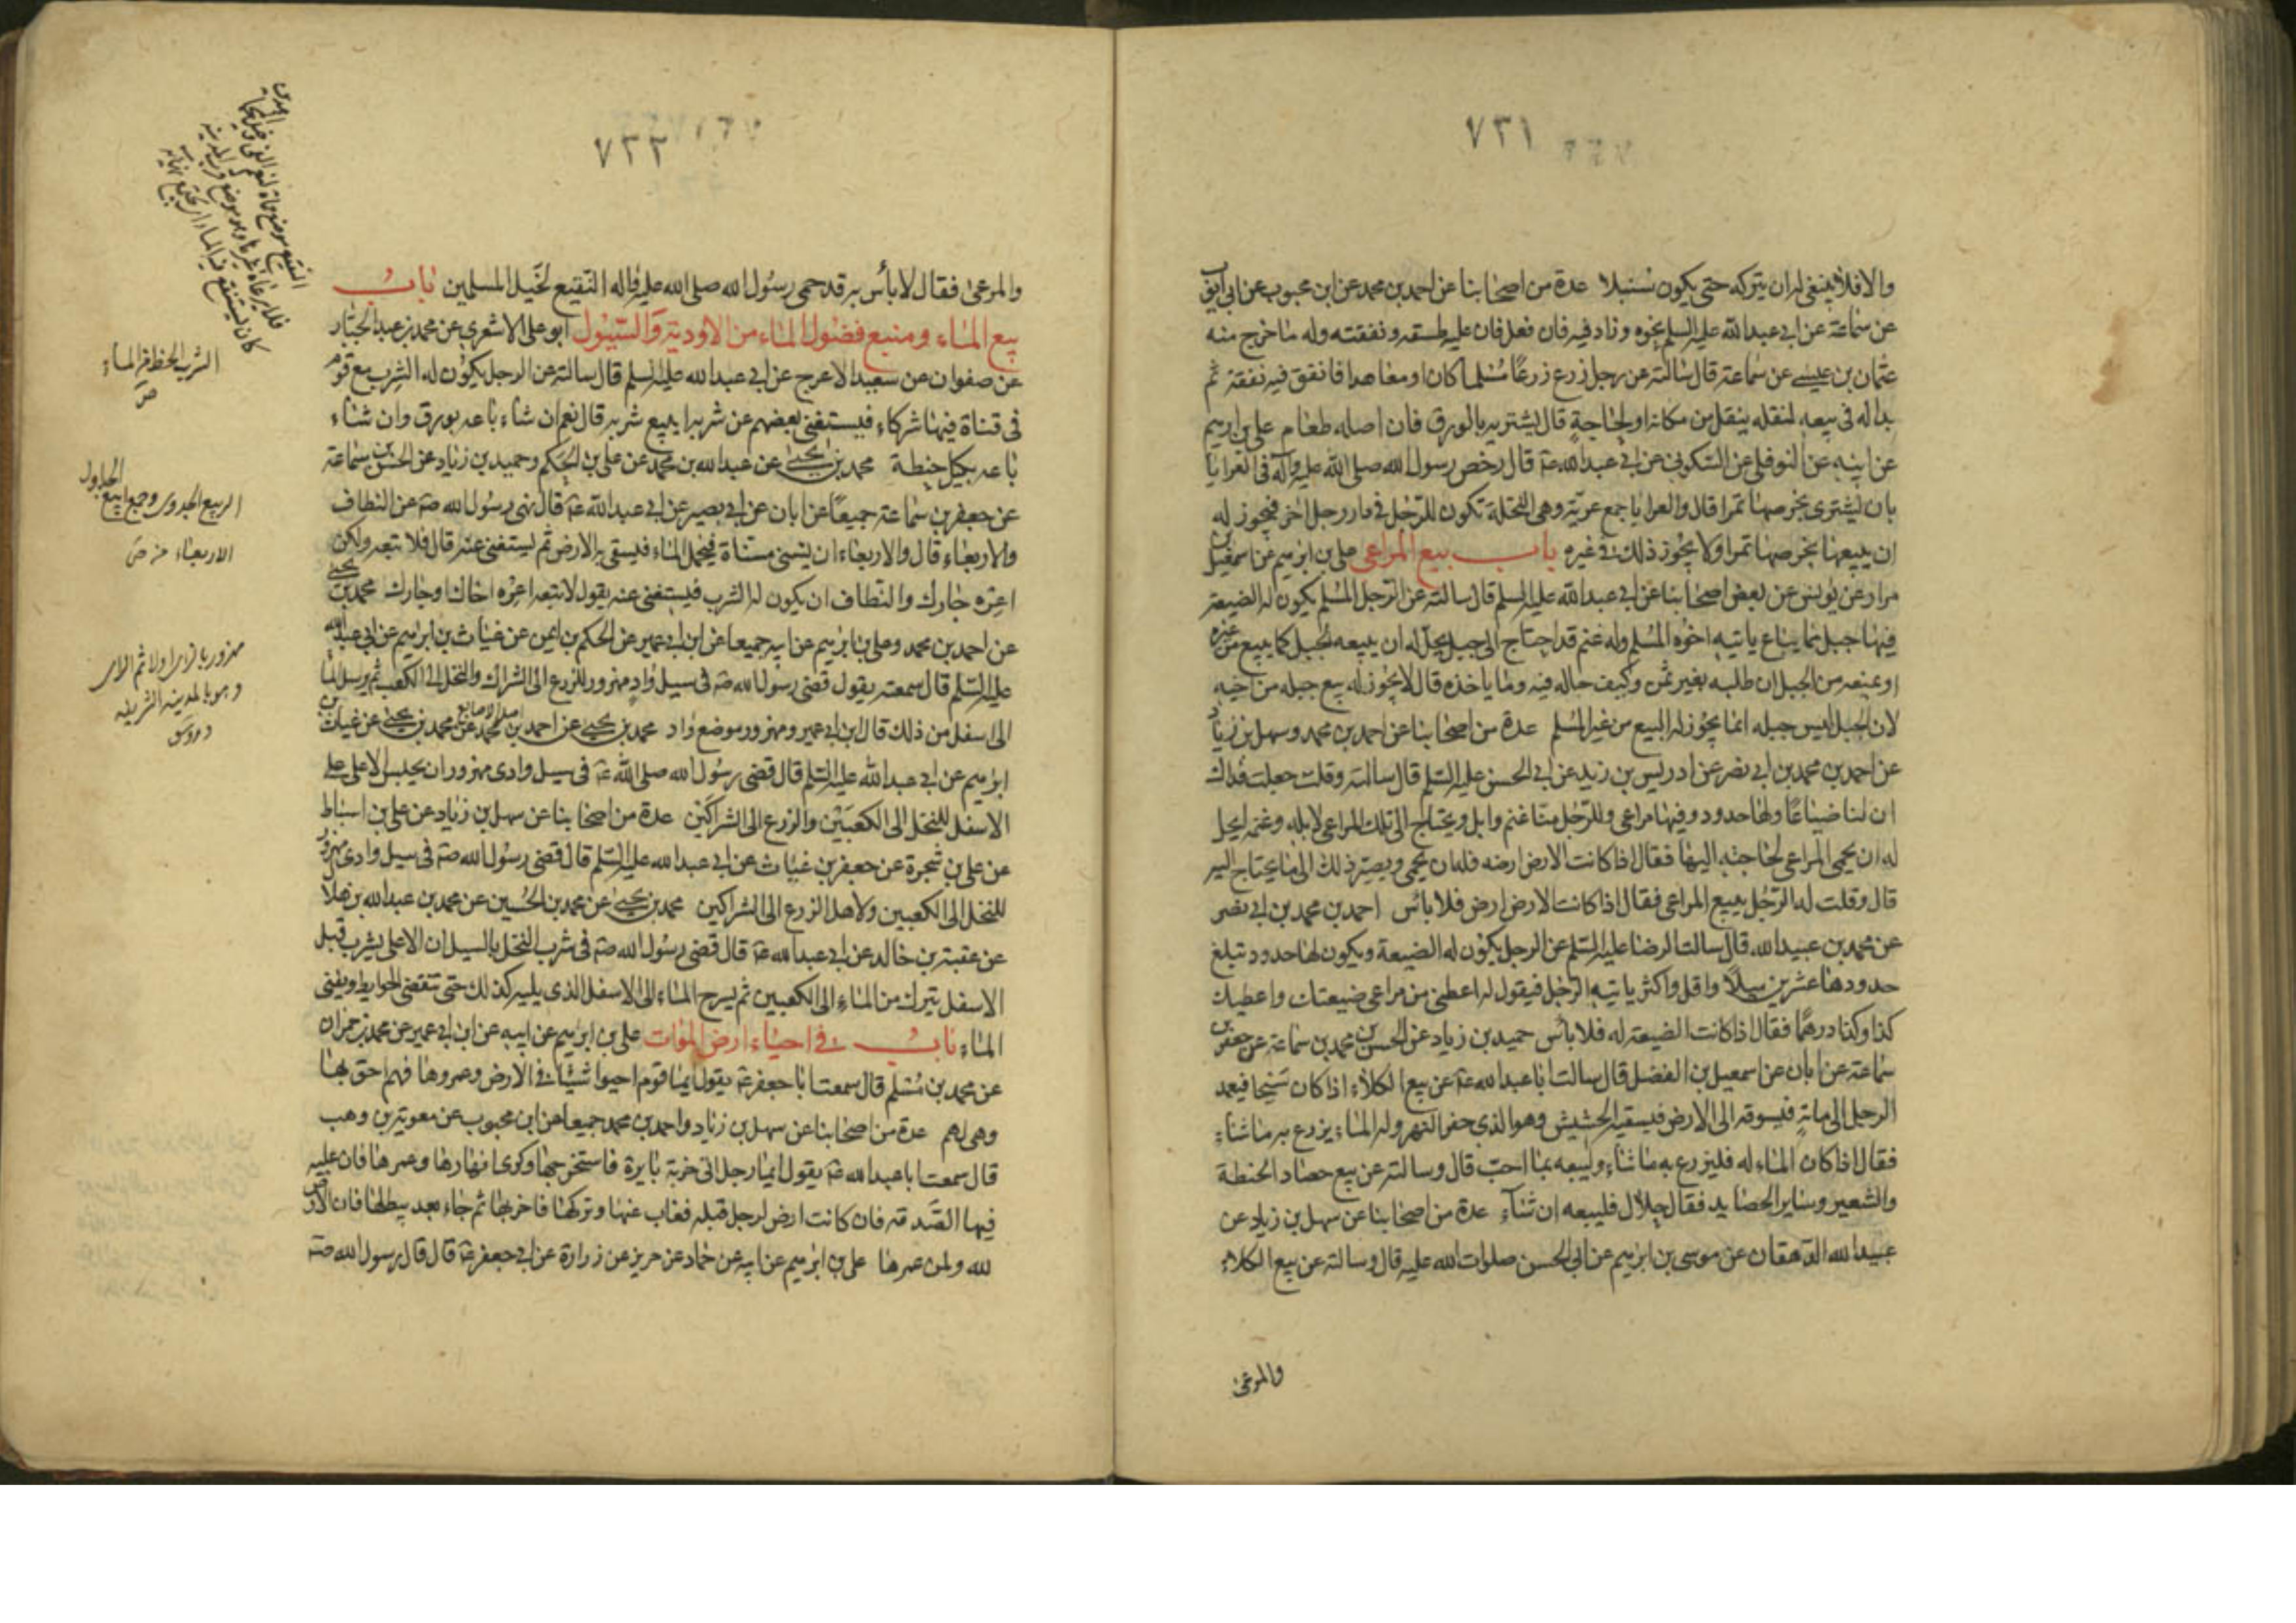 ٧٣١
والا فلا ينبغى له ان يتركه حتى يكون سنبلا عدة من اصحابنا عن احمد بن محمد عن ابن محبوب عن ابى ايوب
عن سماعة عن ابى عبدالله عليه السلم نحوه وزاد فيه فان فعل فان عليه طسقه ونفقته وله ما خرج منه
عثمان بن عيسى عن سماعة قال سالته عن رجل زرع زرعًا مسلما كان او معاهدا فانفق فيه نفقة ثم
بدا له فى بيعه لنقله ينقل من مكانه او لحاجةٍ قال يشتريه بالورق فان اصله طعام على بن ابرهيم
عن ابيه عن النوفلى عن السكونى عن ابى عبدالله ع قال رخص رسول الله صلى الله عليه وآله فى العرايا
بان يشترى بخرصها تمرا قال والعرايا جمع عريّة وهى النخلة تكون للرّجل فى دار رجل اخر فيجوز له
ان يبيعها بخرصها تمرا ولا يجوز ذلك فى غيره باب بيع المراعى على بن ابرهيم عن اسمعيل بن
مرار عن يونس عن بعض اصحابنا عن ابى عبدالله عليه السلم قال سالته عن الرّجل المسلم يكون له الضيعة
فيها جبل مما يباع ياتيه اخوه المسلم وله غنم قد احتاج الى جبل يحلّ له ان يبيعه الجبل كما يبيع من غيره
او يمنعه من الجبل ان طلبه بغير ثمن وكيف حاله فيه وما ياخذه قال لا يجوز له بيع جبله من اخيه
لان الجبل ليس جبله انما يجوز له البيع من غير المسلم عدة من اصحابنا عن احمد بن محمد وسهل بن زياد
عن احمد بن محمد بن ابى نصر عن ادريس بن زيد عن ابى الحسن عليه السّلم قال سالته وقلت جعلت فداك
ان لنا ضياعًا ولها حدود وفيها مراعى وللرّجل منّا غنم وابل ويحتاج الى تلك المراعى لابله وغنمه ايحل
له ان يحمى المراعى لحاجته اليها فقال اذا كانت الارض ارضه فله ان يحمى ويصيّر ذلك الى ما يحتاج اليه
قال وقلت له الرّجل يبيع المراعى فقال اذا كانت الارض ارضه فلا باس احمد بن محمد بن ابى نصر
عن محمد بن عبيدالله قال سالت الرضا عليه السّلم عن الرجل يكون له الضيعة ويكون لها حدود تبلغ
حدودها عشرين ميلاً واقل واكثر ياتيه الرّجل فيقول له اعطنى من مراعى ضيعتك واعطيك
كذا وكذا درهمًا فقال اذا كانت الضيعة له فلا بأس حميد بن زياد عن الحسن بن محمد بن سماعة عن جعفر بن
سماعة عن ابان عن اسمعيل بن الفضل قال سالت ابا عبدالله ع عن بيع الكلاء اذا كان سيحا فيعمد
الرجل الى مائه فيسوقه الى الارض فيسقيه الحشيش وهو الذى حفر النهر وله الماء يزرع به ما شاء
فقال اذا كان الماء له فليزرع به ما شاء وليبعه بما احبّ قال وسالته عن بيع حصاد الحنطة
والشعير وساير الحصايد فقال حلال فليبعه ان شآء عدة من اصحابنا عن سهل بن زياد عن
عبيدالله الدّهقان عن موسى بن ابرهيم عن ابى الحسن صلوات الله عليه قال وسالته عن بيع الكلاء
والمرعى
٧٣٢
والمرعى فقال لا بأس به قد حمى رسول الله صلى الله عليه واله النّقيع لخيل المسلمين باب
بيع الماء ومنع فضول الماء من الاودية والسّيول ابو على الاشعرى عن محمد بن عبد الجبّار
عن صفوان عن سعيد الاعرج عن ابى عبدالله عليه السّلم قال سالته عن الرجل يكون له الشرب مع قوم
فى قناة فيها شركاء فيستغنى بعضهم عن شربه ايبيع شربه قال نعم ان شاء باعه بورق وان شاء
باعه بكيل حنطة محمد بن يحيى عن عبدالله بن محمد عن على بن الحكم وحميد بن زياد عن الحسن بن سماعة
عن جعفر بن سماعة جميعًا عن ابان عن ابى بصير عن ابى عبدالله ع قال نهى رسول الله ص عن النطاف
والاربعاء قال والاربعاء ان يسنى مسناة فيحمل الماء فيسقى به الارض ثم يستغنى عنه قال فلا تبعه ولكن
اعره جارك والنّطاف ان يكون له الشرب فيستغنى عنه يقول لا تبعه اعره اخاك او جارك محمد بن يحيى
عن احمد بن محمد وعلى بن ابرهيم عن ابيه جميعا عن ابن ابى عمير عن الحكم بن ايمن عن غياث بن ابرهيم عن ابى عبدالله
عليه السّلم قال سمعته يقول قضى رسول الله ص فى سيل وادٍ مهزور للزرع الى الشراك والنخل الى الكعب ثم يرسل الما
الى اسفل من ذلك قال ابن ابى عمير ومهزور موضع واد محمد بن يحيى عن احمد بن محمد عن محمد بن يحيى عن غياث بن
ابرهيم عن ابى عبدالله عليه السّلم قال قضى رسول الله صلى الله ع فى سيل وادى مهزور ان يحبس الاعلى على
الاسفل للنخل الى الكعبين والزرع الى الشراكين عدة من اصحابنا عن سهل بن زياد عن على بن اسباط
عن على بن شجرة عن جعفر بن غياث عن ابى عبدالله عليه السّلم قال قضى رسول الله ص فى سيل وادى مهزور
للنخل الى الكعبين ولاهل الزرع الى الشراكين محمد بن يحيى عن محمد بن الحسين عن محمد بن عبدالله بن هلال
عن عقبة بن خالد عن ابى عبدالله ع قال قضى رسول الله ص فى شرب النخل بالسيل ان الاعلى يشرب قبل
الاسفل يترك من الماء الى الكعبين ثم يسرح الماء الى الاسفل الذى يليه كذلك حتى تنقضى الحوايط ويفنى
الماء باب فى احياء ارض الموات على بن ابرهيم عن ابيه عن ابن ابى عمير عن محمد بن حمران
عن محمد بن مسلم قال سمعت ابا جعفر ع يقول ايما قوم احيوا شيئا فى الارض وعمروها فهم احق بها
وهى لهم عدة من اصحابنا عن سهل بن زياد واحمد بن محمد جميعا عن ابن محبوب عن معوية بن وهب
قال سمعت ابا عبدالله ع يقول ايما رجل اتى خربة بايرة فاستخرجها وكرى انهارها وعمرها فان عليه
فيها الصّدقة فان كانت ارض لرجل قبله فغاب عنها وتركها فاخربها ثم جاء بعد يطلبها فان الارض
لله ولمن عمرها على بن ابرهيم عن ابيه عن حماد عن حريز عن زرارة عن ابى جعفر ع قال قال رسول الله ص
الشرب الحظ من الماء
ص
الربيع الجدول وجمع
الاربعاء من ص
وهو بالمدينة الشريفة